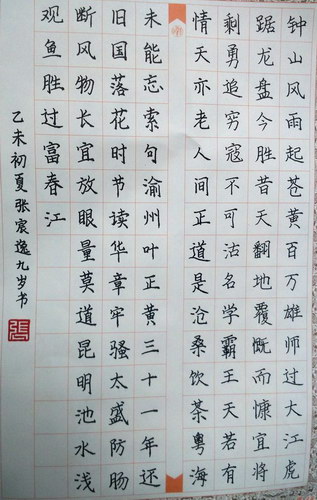 钟山风雨起苍黄百万雄师过大江虎
踞龙盘今胜昔天翻地覆慨而慷宜将
剩勇追穷寇不可沽名学霸王天若有
情天亦老人间正道是沧桑饮茶粤海
未能忘索句渝州叶正黄三十一年还
旧国落花时节读华章牢骚太盛防肠
断风物长宜放眼量莫道昆明池水浅
观鱼胜过富春江
乙未初夏张宸逸九岁书
張